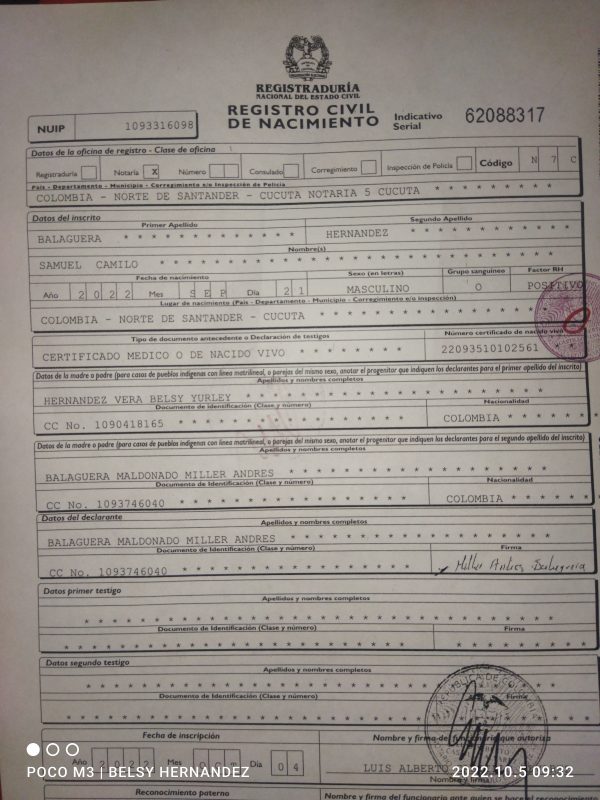 REGISTRADURÍA
NACIONAL DEL ESTADO CIVIL
REGISTRO CIVIL
DE NACIMIENTO
Indicativo
Serial
62088317
NUIP
1093316098
Datos de la oficina de registro - Clase de oficina
Registraduría
Notaría X
Número
Consulado
Corregimiento
Inspección de Policía
Código N 7 C
País - Departamento - Municipio - Corregimiento e/o Inspección de Policía
COLOMBIA - NORTE DE SANTANDER - CUCUTA NOTARIA 5 CUCUTA * * * * * * * *
Datos del inscrito
Primer Apellido
Segundo Apellido
BALAGUERA * * * * * * * * * * * * *
HERNANDEZ * * * * * * * * * * * *
Nombre(s)
SAMUEL CAMILO * * * * * * * * * * * * * * * * * * * * * * *
Fecha de nacimiento
Sexo (en letras)
Grupo sanguíneo
Factor RH
Año 2 0 2 2 Mes S E P Día 2 1
MASCULINO
O
POSITIVO
Lugar de nacimiento (País - Departamento - Municipio - Corregimiento e/o Inspección)
COLOMBIA - NORTE DE SANTANDER - CUCUTA * * * * * * * * * * *
Tipo de documento antecedente o Declaración de testigos
Número certificado de nacido vivo
CERTIFICADO MEDICO O DE NACIDO VIVO * * * * * * * *
22093510102561
Datos de la madre o padre (para casos de pueblos indígenas con línea matrilineal, o parejas del mismo sexo, anotar el progenitor que indiquen los declarantes para el primer apellido del inscrito)
Apellidos y nombres completos
HERNANDEZ VERA BELSY YURLEY * * * * * * * * * * * * * * * * * *
Documento de Identificación (Clase y número)
Nacionalidad
CC No. 1090418165 * * * * * * * * * * * * *
COLOMBIA * * * * *
Datos de la madre o padre (para casos de pueblos indígenas con línea matrilineal, o parejas del mismo sexo, anotar el progenitor que indiquen los declarantes para el segundo apellido del inscrito)
Apellidos y nombres completos
BALAGUERA MALDONADO MILLER ANDRES * * * * * * * * * * * * * * *
Documento de Identificación (Clase y número)
Nacionalidad
CC No. 1093746040 * * * * * * * * * * * * *
COLOMBIA * * * * *
Datos del declarante
Apellidos y nombres completos
BALAGUERA MALDONADO MILLER ANDRES * * * * * * * * * * * * * * *
Documento de Identificación (Clase y número)
Firma
CC No. 1093746040 * * * * * * * * * * * * *
Miller Andres Balaguera
Datos primer testigo
Apellidos y nombres completos
* * * * * * * * * * * * * * * * * * * * * * * * * * * *
Documento de Identificación (Clase y número)
Firma
* * * * * * * * * * * * * * * * * * * * * * * * * * *
Datos segundo testigo
Apellidos y nombres completos
* * * * * * * * * * * * * * * * * * * * * * * *
Documento de Identificación (Clase y número)
Firma
* * * * * * * * * * * * * * * * * * * * * * *
Fecha de inscripción
Nombre y firma del funcionario que autoriza
Año 2 0 2 2 Mes O C T Día 0 4
LUIS ALBERTO
Nombre y firma
POCO M3 | BELSY HERNANDEZ
2022.10.5 09:32
Reconocimiento paterno
Nombre y firma del funcionario ante quien se hace el reconocimiento